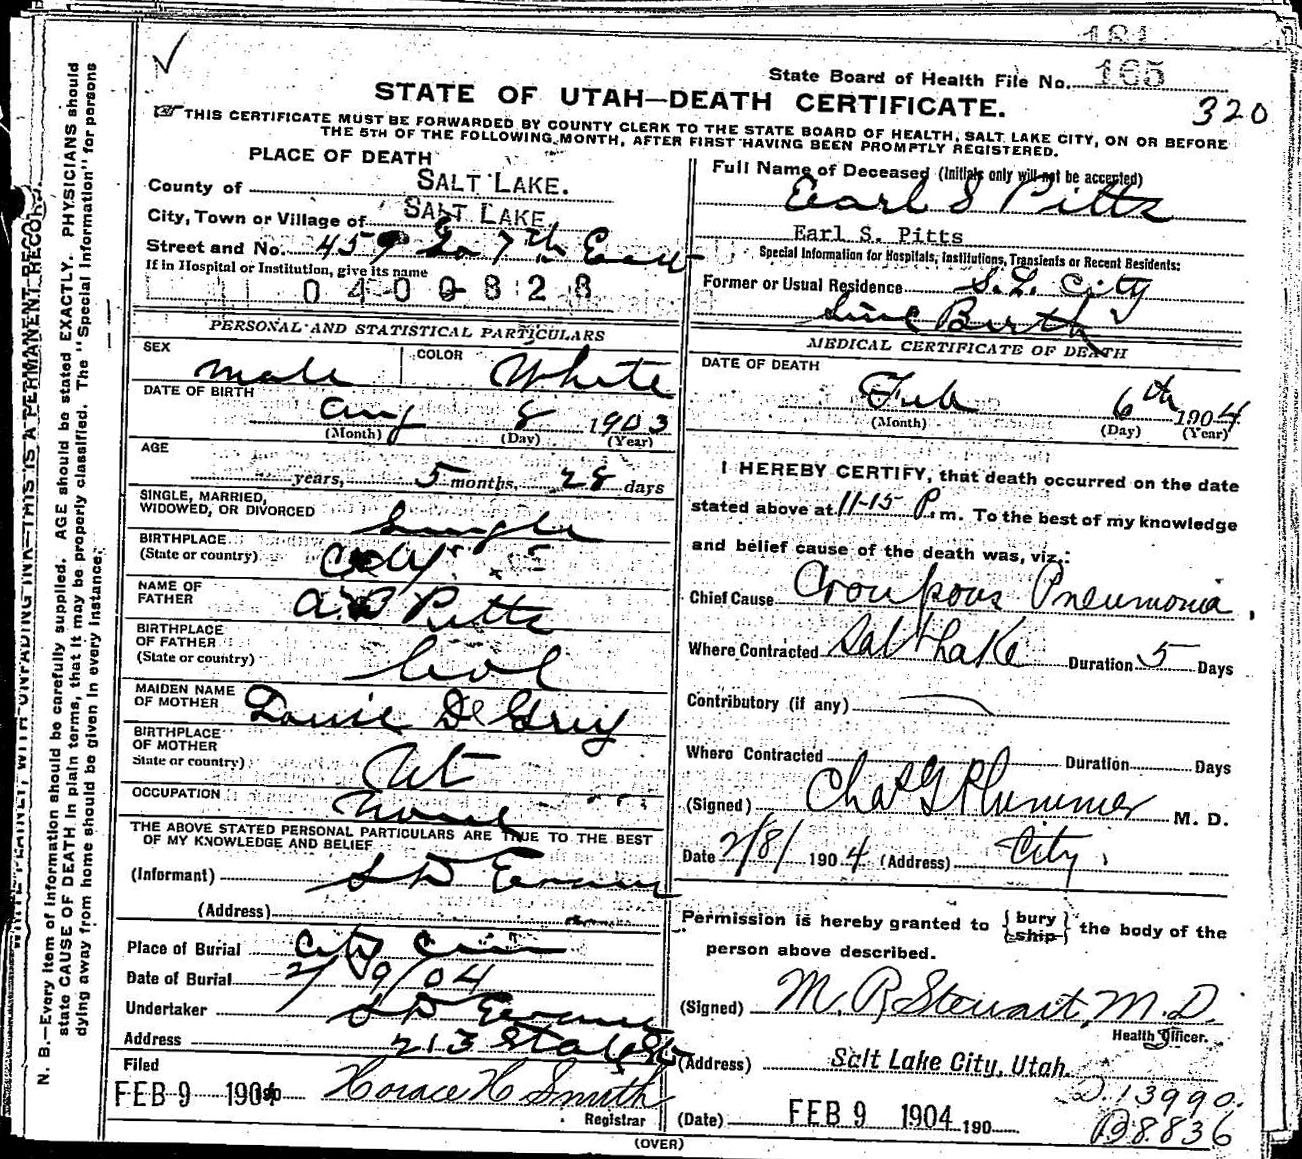 181
State Board of Health File No. 165
320
STATE OF UTAH—DEATH CERTIFICATE.
THIS CERTIFICATE MUST BE FORWARDED BY COUNTY CLERK TO THE STATE BOARD OF HEALTH, SALT LAKE CITY, ON OR BEFORE
THE 5TH OF THE FOLLOWING MONTH, AFTER FIRST HAVING BEEN PROMPTLY REGISTERED.
PLACE OF DEATH
County of SALT LAKE.
City, Town or Village of SALT LAKE
Street and No. 459 So 7th East
If in Hospital or Institution, give its name
0400828
PERSONAL AND STATISTICAL PARTICULARS
SEX male COLOR White
DATE OF BIRTH
Aug 8 1903
(Month) (Day) (Year)
AGE
years, 5 months, 28 days
SINGLE, MARRIED,
WIDOWED, OR DIVORCED Single
BIRTHPLACE
(State or country) City
NAME OF
FATHER Pitts
BIRTHPLACE
OF FATHER
(State or country) Col
MAIDEN NAME
OF MOTHER Louise De Grey
BIRTHPLACE
OF MOTHER
State or country) Ut
OCCUPATION None
THE ABOVE STATED PERSONAL PARTICULARS ARE TRUE TO THE BEST
OF MY KNOWLEDGE AND BELIEF
(Informant) S D Evans
(Address)
Place of Burial City Cem
Date of Burial 2/9/04
Undertaker S D Evans
Address 213 State St
Filed
FEB 9 1904 Horace H Smith
Registrar
Full Name of Deceased (Initials only will not be accepted)
Earl S Pitts
Earl S. Pitts
Special Information for Hospitals, Institutions, Transients or Recent Residents:
Former or Usual Residence S. L. City
Since Birth
MEDICAL CERTIFICATE OF DEATH
DATE OF DEATH
Feb 6th 1904
(Month) (Day) (Year)
I HEREBY CERTIFY, that death occurred on the date
stated above at 11-15 P. m. To the best of my knowledge
and belief cause of the death was, viz.:
Chief Cause Croupous Pneumonia,
Where Contracted Salt Lake Duration 5 Days
Contributory (if any)
Where Contracted Duration Days
(Signed) Chas G Plummer M. D.
Date 2/8/ 1904 (Address) City.
Permission is hereby granted to {bury ship} the body of the
person above described.
(Signed) M. R. Stewart, M.D.
Health Officer.
(Address) Salt Lake City, Utah.
D. 13990.
(Date) FEB 9 1904 190
B8836
(OVER)
N. B.—Every item of information should be carefully supplied. AGE should be stated EXACTLY. PHYSICIANS should
state CAUSE OF DEATH in plain terms, that it may be properly classified. The "Special Information" for persons
dying away from home should be given in every instance.
WRITE PLAINLY, WITH UNFADING INK—THIS IS A PERMANENT RECORD.